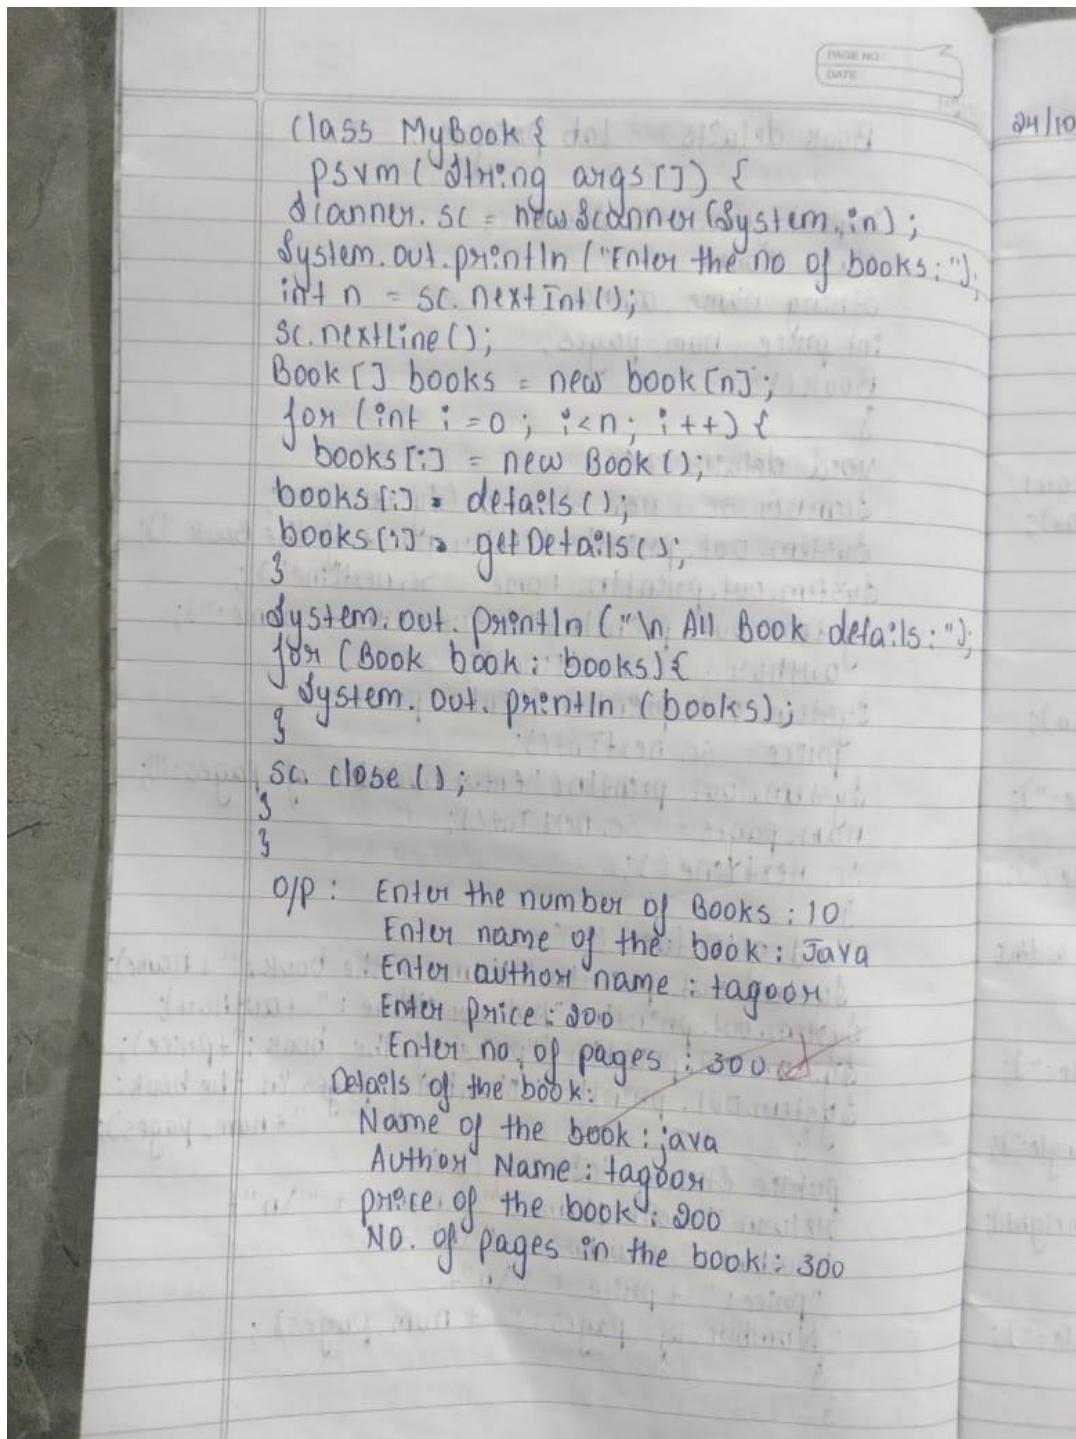 PAGE NO:
DATE
24/10
class MyBook {
psvm (String args[]) {
Scanner. sc = new Scanner (System.in);
System.out.println ("Enter the no of books:");
int n = sc. nextInt();
sc.nextline();
Book [] books = new book[n];
for (int i=0; i<n; i++) {
books[i] = new Book ();
books[i]. details();
books[i]. getDetails();
}
System.out.println ("\n All Book details:");
for (Book book: books) {
System. out. println (books);
}
sc. close ();
}
}
O/P : Enter the number of Books : 10
Enter name of the book: Java
Enter author name : tagoor
Enter price : 200
Enter no. of pages : 300
Details of the book:
Name of the book : java
Author Name : tagoor
price of the book : 200
NO. of pages in the book : 300